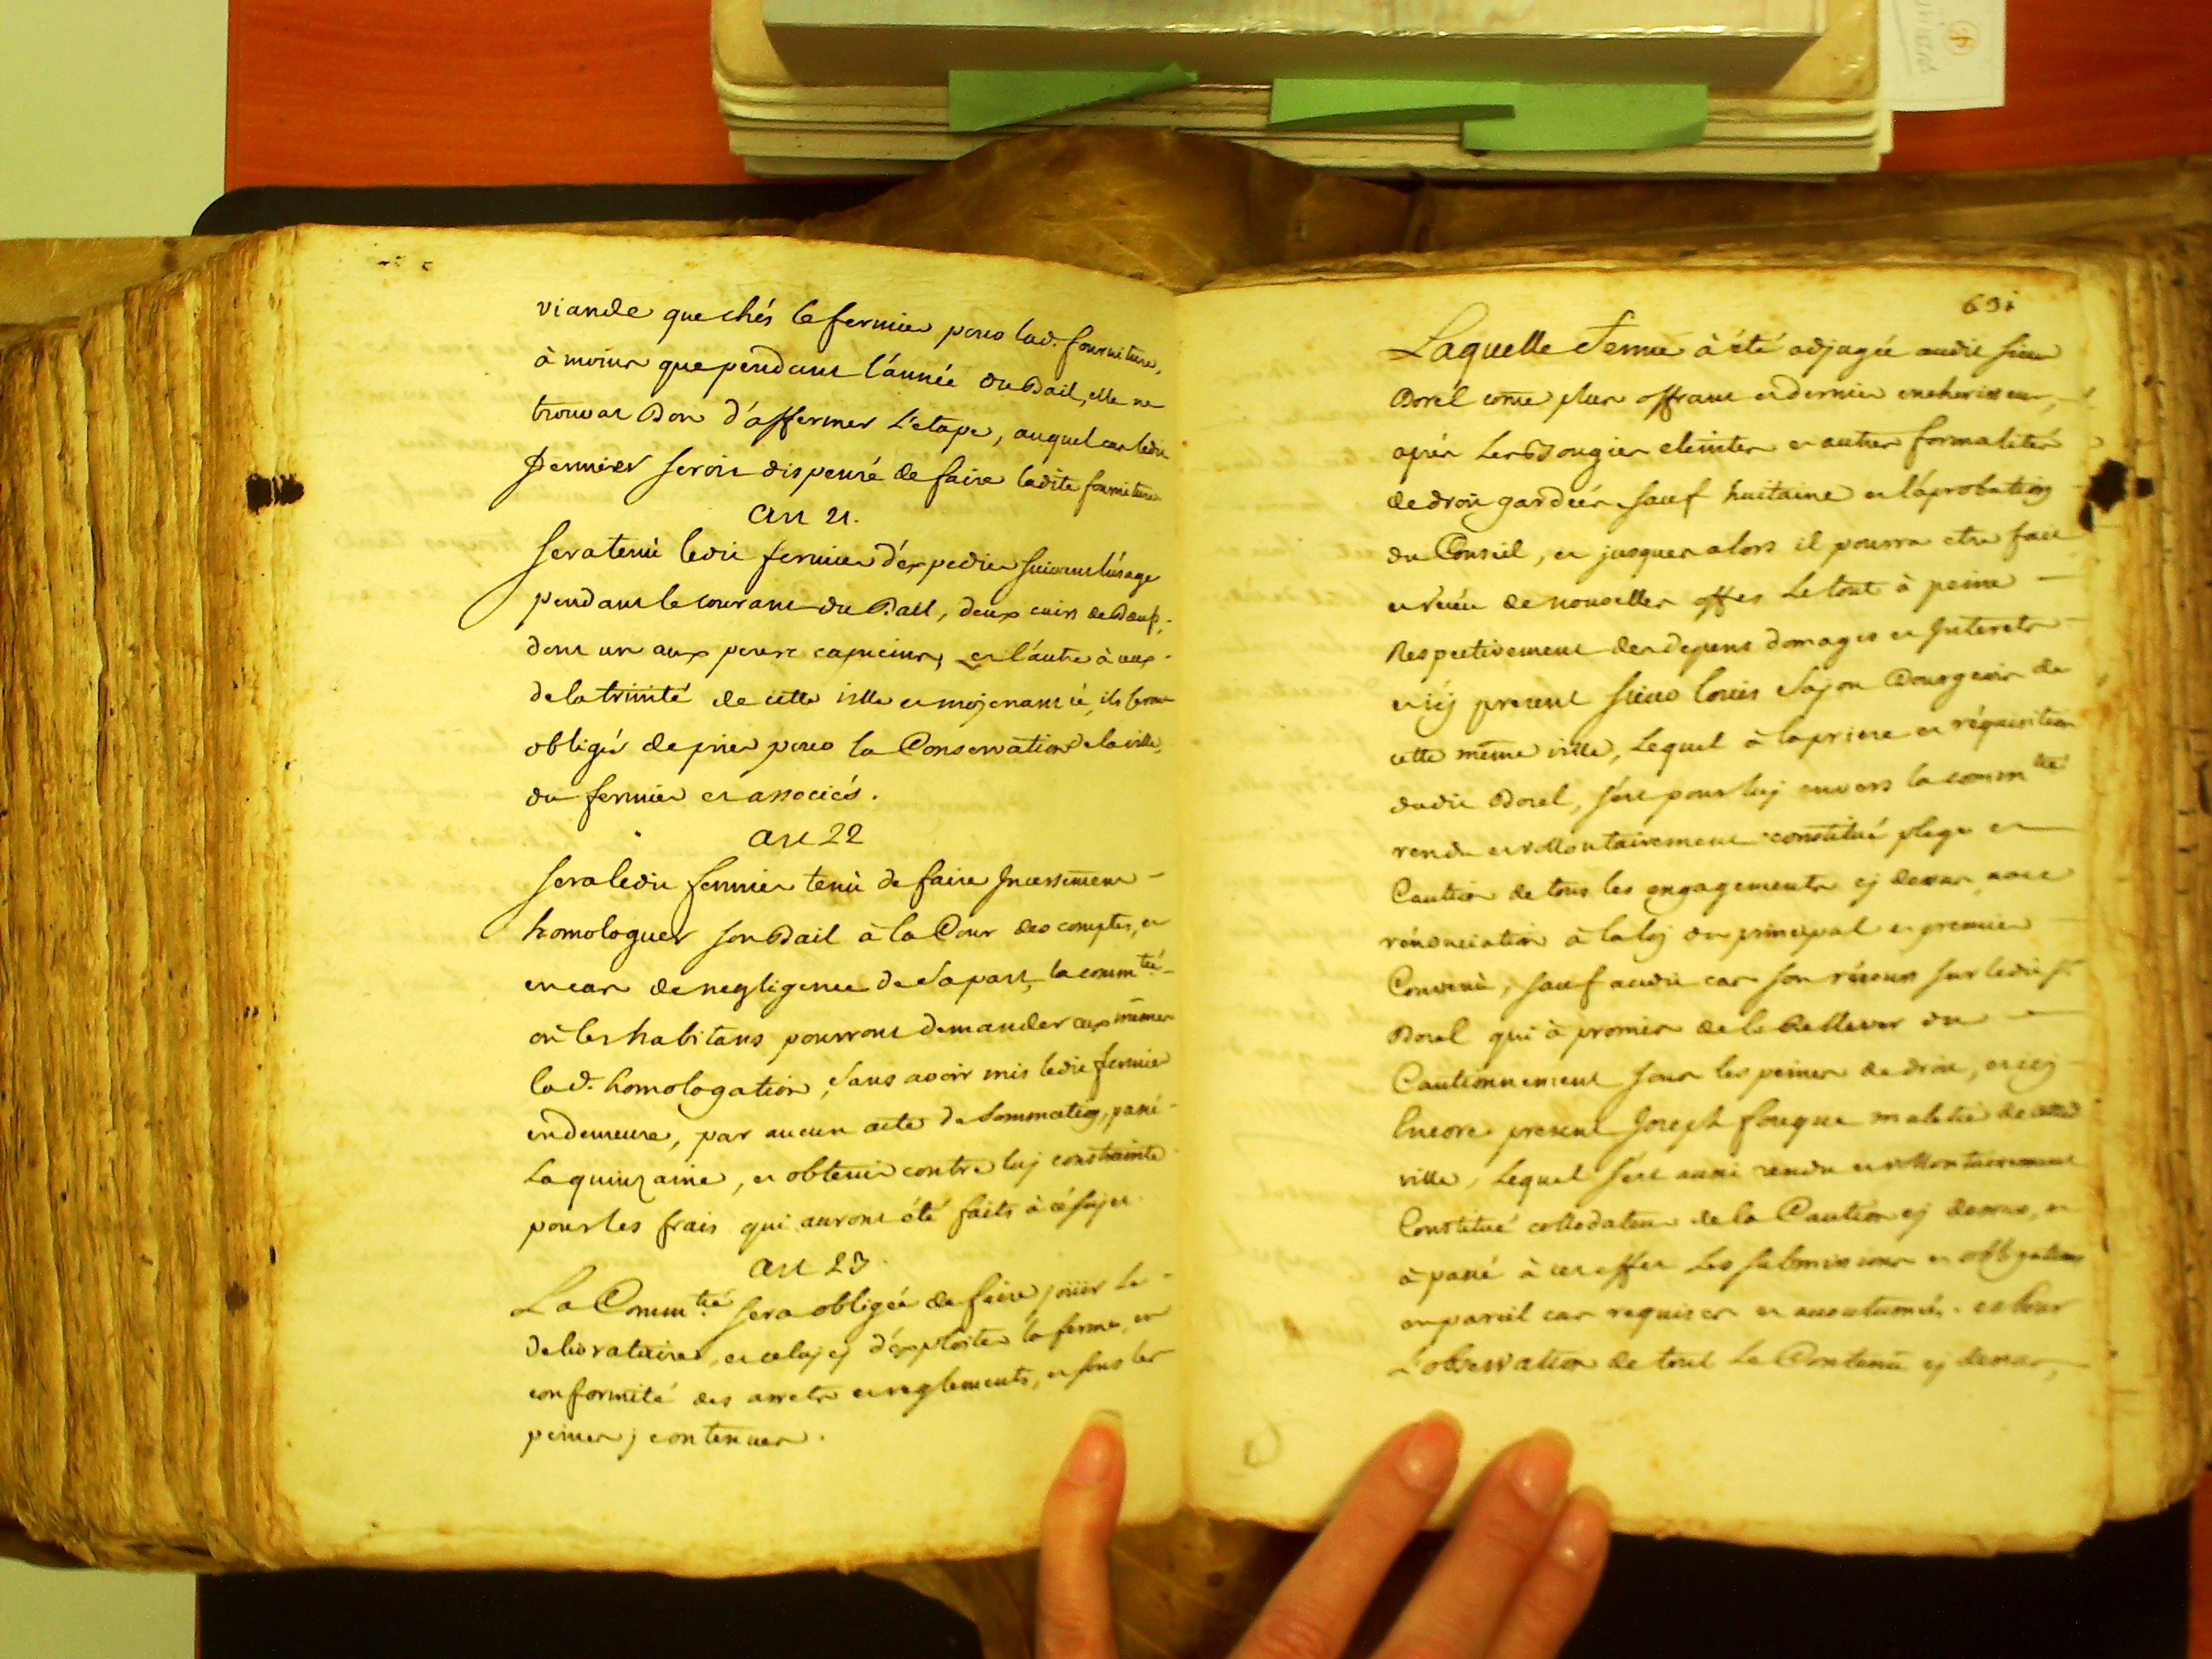 viande que chés le fermier pour lad. fourniture,
à moins que pendant l'année du Bail, elle ne
trouvat Bon d'affermer L'etape, auquel cas ledit
fermier seroit dispensé de faire ladite fourniture
Art 21.
Sera tenù ledit fermier d'expedier suivant l'usage
pendant le courant du Bail, deux cuirs de Bœuf,
dont un aux peres capucins, et l'autre à ceux
de la trinité de cette ville et mojenant cé, ils seront
obligés de prier pour la Conservation de la ville,
du fermier et associés.
Art 22
Sera ledit fermier tenù de faire Incessement
homologuer son Bail à la Cour des comptes, et
en cas de negligence de Sa part, la comm.té
où les habitans pourront demander eux mêmes
lad. homologation, sans avoir mis ledit fermier
en demeure, par aucun acte de Sommation, passé
La quinzaine, et obtenir contre luj constrainte
pour les frais qui auront été faits à cé sujet.
Art 23.
La Comm.té sera obligée de faire joüir Le
deliverataire, et celuj cj d'exploiter la ferme, en
conformité des arrets et reglements, et sous les
peines j contenues.
691
Laquelle ferme à été adjugée audit sieur
Borel come plus offrant et dernier encherisseur,
aprés Les Bougies eteintes et autres formalités
de droit gardées sauf huitaine et l'aprobation
du Conseil, et jusques alors il pourra etre fait
et reçeu de nouvelles offres Le tout à peine
Respectivement des depens domages et Interets
et icj present sieur louis Sajon Bourgeois de
cette même ville, Lequel à la priere et réquisition
dudit Borel, s'est pour luj envers la comm.té
rendu et vollontairement constitué plege et
Caution de tous les engagements cj dessus, avec
rénonciation à la loj du principal et premier
Convenù, sauf audit cas son récours sur ledit s.r
Borel qui à promis de le Rellever du
Cautionnement sous les peines de droit, et icj
Encore present Joseph fouque de cette
ville, Lequel s'est aussi rendu et vollontairement
Constitué collodateur de la Caution cj dessus, et
à passé à cet effet Les submissions et obbligations
en pareil cas requises et accoutumées. et Pour
L'observation de tout Le Contenù cj dessus,